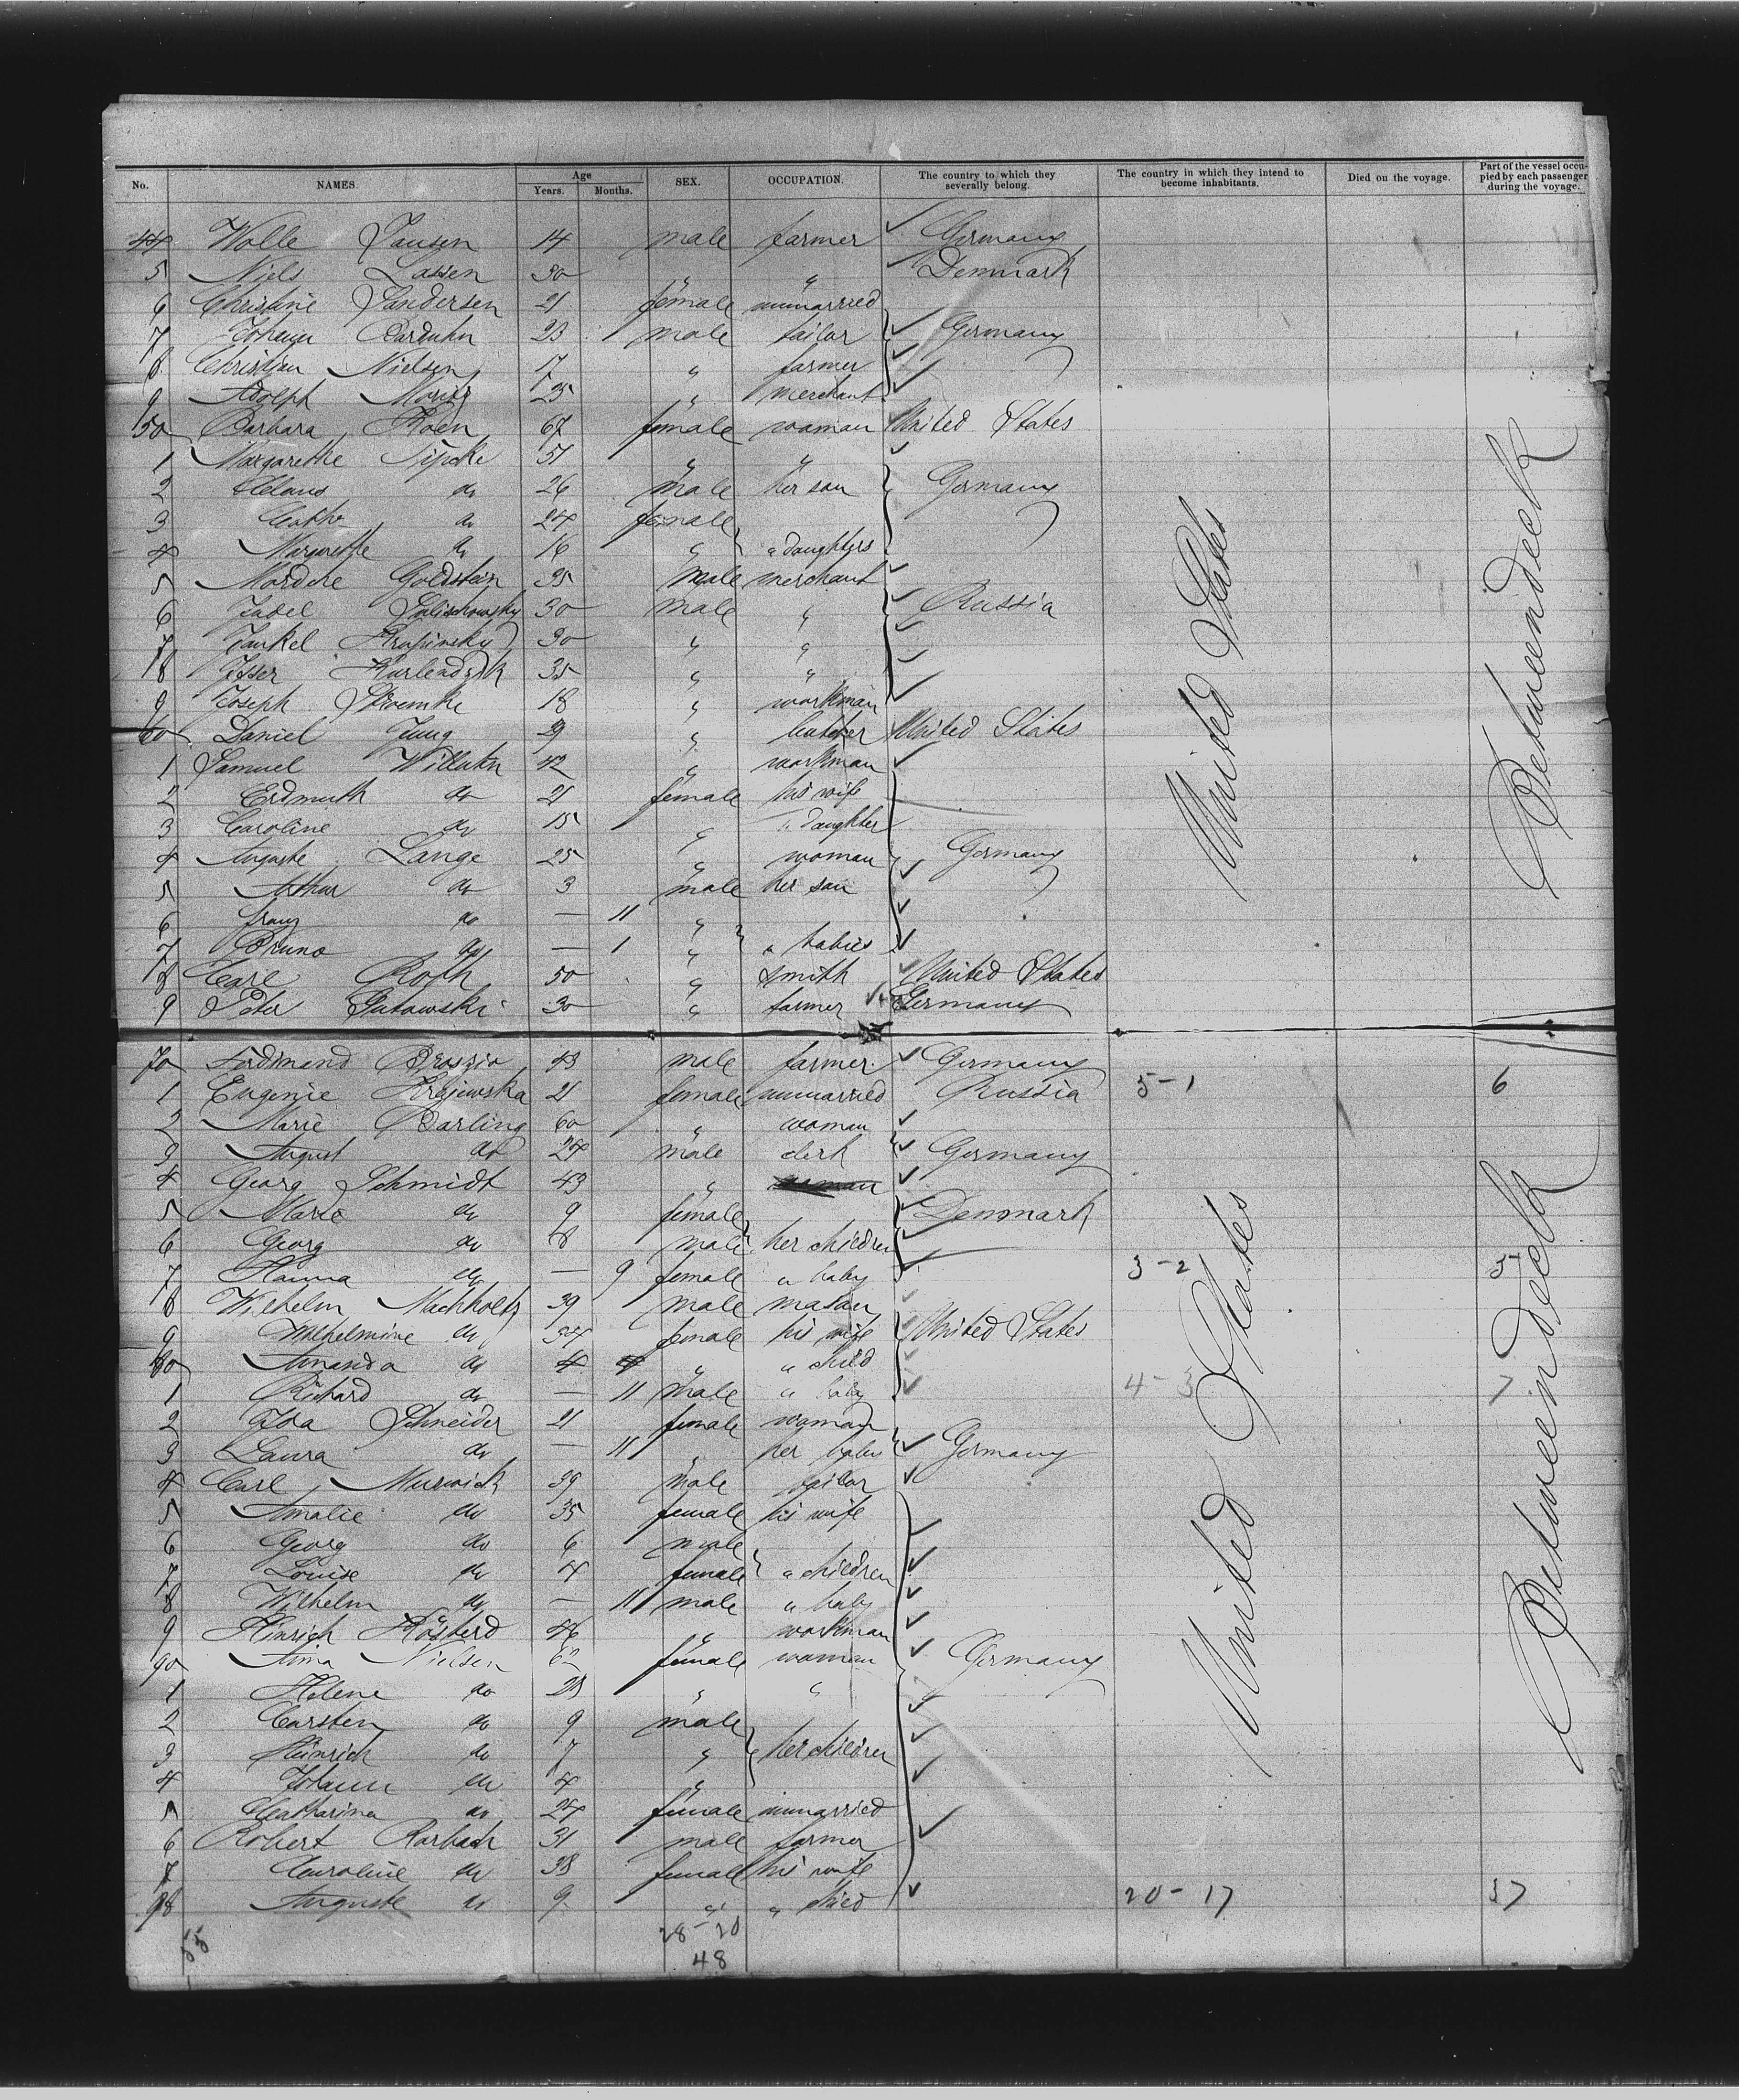 No. NAMES. Age Years. Months. SEX. OCCUPATION. The country to which they severally belong. The country in which they intend to become inhabitants. Died on the voyage. Part of the vessel occupied by each passenger during the voyage.
44 Wolle Jansen 14 male farmer Germany
5 Niels Lassen 30 " " Denmark
6 Christine Sandersen 21 female unmarried
7 Johann 23 male tailor Germany
8 Christian Nielsen 17 " farmer
9 Adolph Moritz 25 " merchant
150 Barbara Koen 67 female woman United States
1 Margarethe 51 " "
2 do 26 male her son Germany
3 Cathr do 24 female
4 Margarethe do 16 " " daughters
5 Goldstein 35 male merchant
6 30 male " Russia
7 Jankel 30 " "
8 35 " "
9 Joseph 18 " workman
60 Daniel Jung 29 " United States
1 Samuel Willuhn 42 " workman
2 Erdmuth do 21 female his wife
3 Caroline do 15 " " daughter
4 Auguste Lange 25 " woman Germany
5 Arthur do 3 male her son
6 Franz do — 11 "
7 Bruno do — 1 " " babies
8 Carl Roth 50 " smith United States
9 Peter Gutowski 30 " farmer Germany
United States
Betweendeck
70 Ferdinand 43 male farmer Germany
1 Eugenie Krajewska 21 female unmarried Russia 5-1 6
2 Marie Darling 60 " woman
3 August do 24 male clerk Germany
4 Georg Schmidt 43 "
5 Marie do 9 female Denmark
6 Georg do 8 male her children
7 Hanna do — 9 female " baby 3-2 5
8 Wilhelm Machholtz 39 male mason
9 Wilhelmine do 34 female his wife United States
80 Amanda do 4 " " child
1 Richard do — 11 male " baby 4-3 7
2 Ida Schneider 21 female woman
3 Laura do — 11 " her baby Germany
4 Carl Murwick 39 male tailor
5 Amalie do 35 female his wife
6 Georg do 6 male
7 Louise do 4 female " children
8 Wilhelm do — 11 male " baby
9 Hinrich 46 " workman
90 Anna Nielsen female woman Germany
1 Helene do 28 " "
2 Carsten do 9 male
3 Heinrich do 7 " her children
4 Johann do 4 "
5 Catharina do 24 female unmarried
6 Robert Rorbach 31 male farmer
7 Caroline do 38 female his wife
98 Auguste do 9 " " child 20-17 37
United States
Betweendeck
55 28-20
48